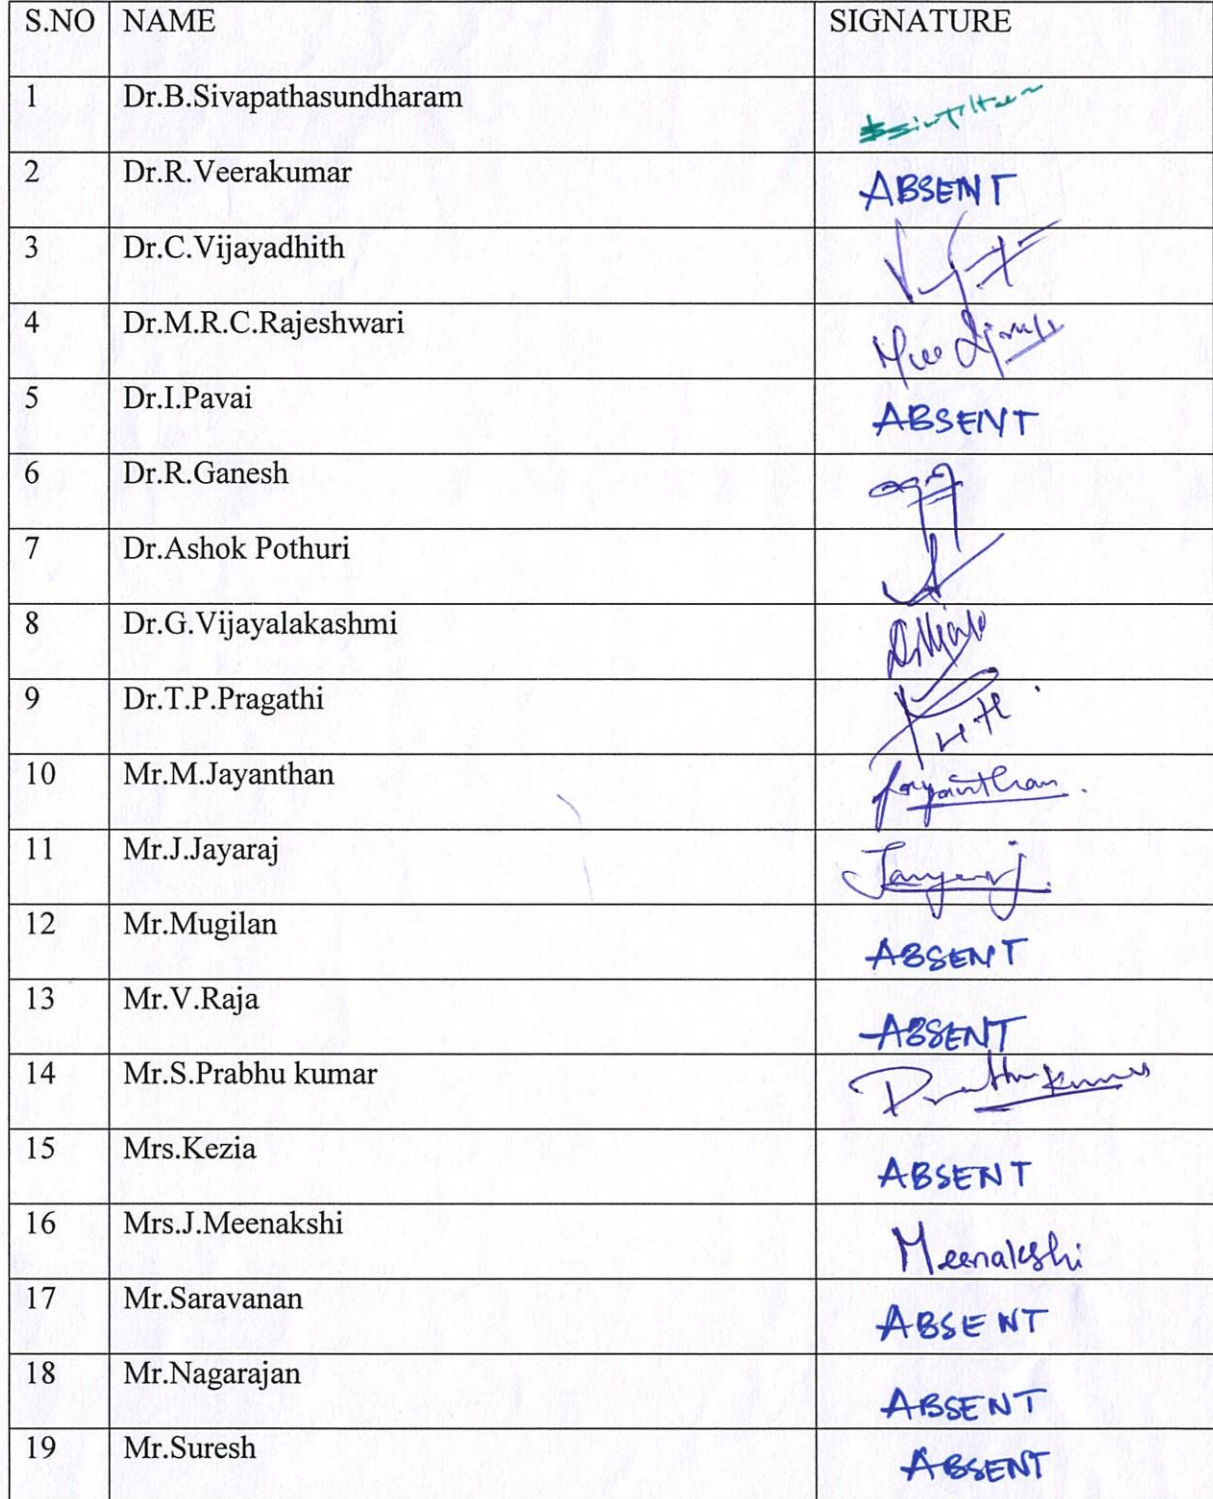 S.NO NAME SIGNATURE
1 Dr.B.Sivapathasundharam
2 Dr.R.Veerakumar ABSENT
3 Dr.C.Vijayadhith
4 Dr.M.R.C.Rajeshwari
5 Dr.I.Pavai ABSENT
6 Dr.R.Ganesh
7 Dr.Ashok Pothuri
8 Dr.G.Vijayalakashmi
9 Dr.T.P.Pragathi
10 Mr.M.Jayanthan Jayanthan.
11 Mr.J.Jayaraj
12 Mr.Mugilan ABSENT
13 Mr.V.Raja ABSENT
14 Mr.S.Prabhu kumar
15 Mrs.Kezia ABSENT
16 Mrs.J.Meenakshi Meenakshi
17 Mr.Saravanan ABSENT
18 Mr.Nagarajan ABSENT
19 Mr.Suresh ABSENT